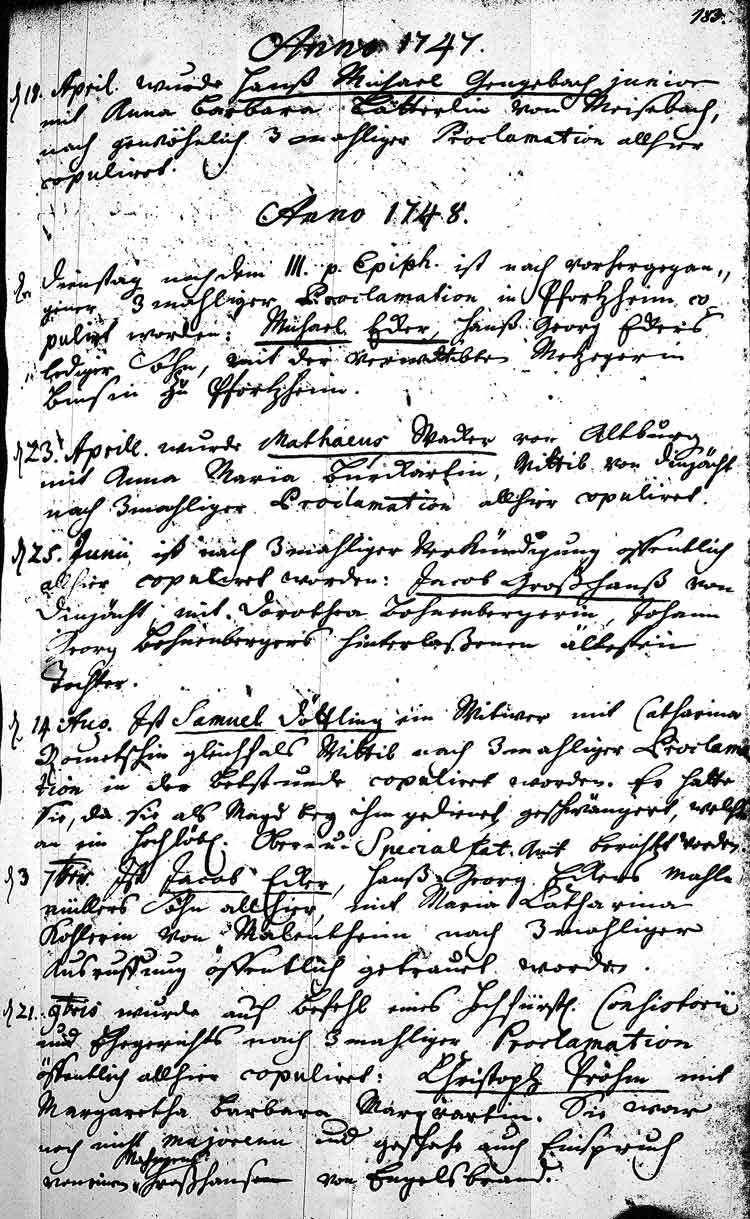 183.
Anno 1747.
d 18. April. wurde Hanß Michael Gengebach junior
mit Anna Barbara von
nach gewöhnlich 3 mahliger Proclamation allhier
copuliret.
Anno 1748.
d. Dienstag nach dem III. p. Epiph. ist nach vorhergegan„
gener 3 mahliger Proclamation in Pfortzheim co„
pulirt worden: Michael Eder, Hanß Georg Eders
lediger Sohn, mit der verwittibten Metzgerin
zu Pfortzheim.
d 23. Aprill. wurde Mathaeus Wacker von Altburg
mit Anna Maria Burckartin, Wittib von
nach 3 mahliger Proclamation allhier copuliret.
d 25. Junii ist nach 3 mahliger Verkündigung offentlich
allhier copuliret worden: Jacob Großhanß von
mit Dorothea Bohnenbergerin, Johann
Georg Bohnenbergers hinterlaßenen ältesten
Tochter.
d. 14 Aug. Ist Samuel ein Witwer mit Catharina
gleichfals Wittib nach 3 mahliger Proclama
tion in der Betstunde copuliret worden. Er hatte
Sie, da sie als Magd bey ihm gedienet, geschwängert, welches
an ein hochlöbl. Ober- u. Specialat. Amt berichtet worden.
d 3 7bris Ist Jacob Eder, Hanß Georg Eders Mahl
müllers Sohn allhier, mit Maria Catharina
Kohlerin von nach 3 mahliger
Ausruffung öffentlich getrauet worden.
d 21. 9bris wurde auf Befehl eines Hochfürstl. Consistorii
und Ehegerichts nach 3 mahliger Proclamation
öffentlich allhier copuliret: Christoph mit
Margaretha Barbara Marquartin. Sie war
noch nicht majorenn und geschahe auch Einspruch
von einem Großhansen von Engelsbrand.